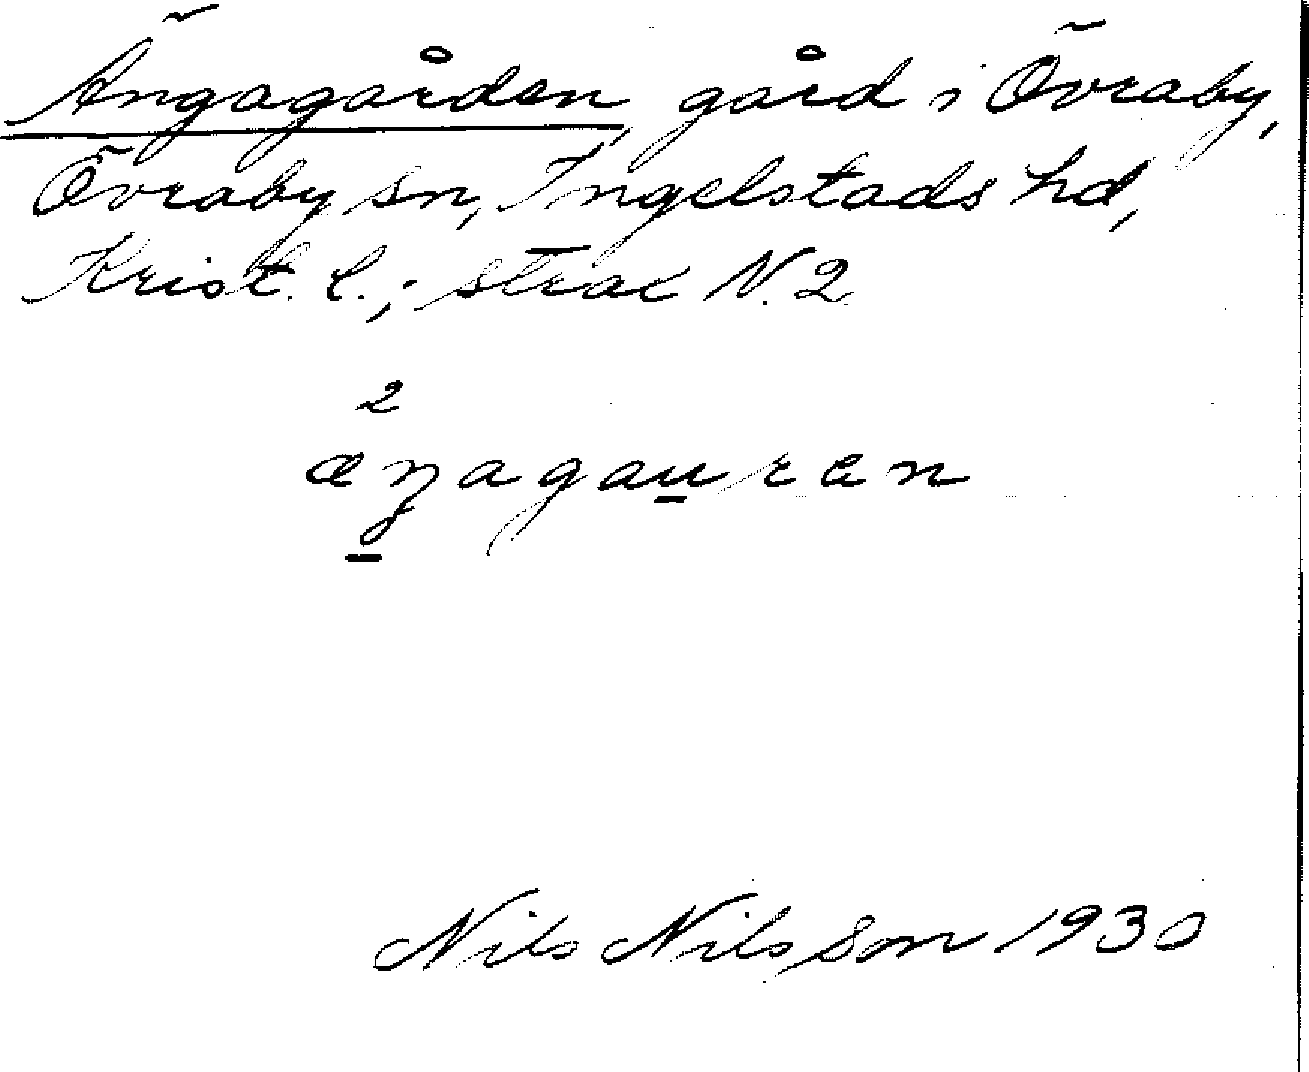 Ängagården, gård i Övraby,
Övraby sn, Ingelstads hd,
Krist. l.; strax N. 2
2
æŋagau̠ræn
Nils Nilsson 1930